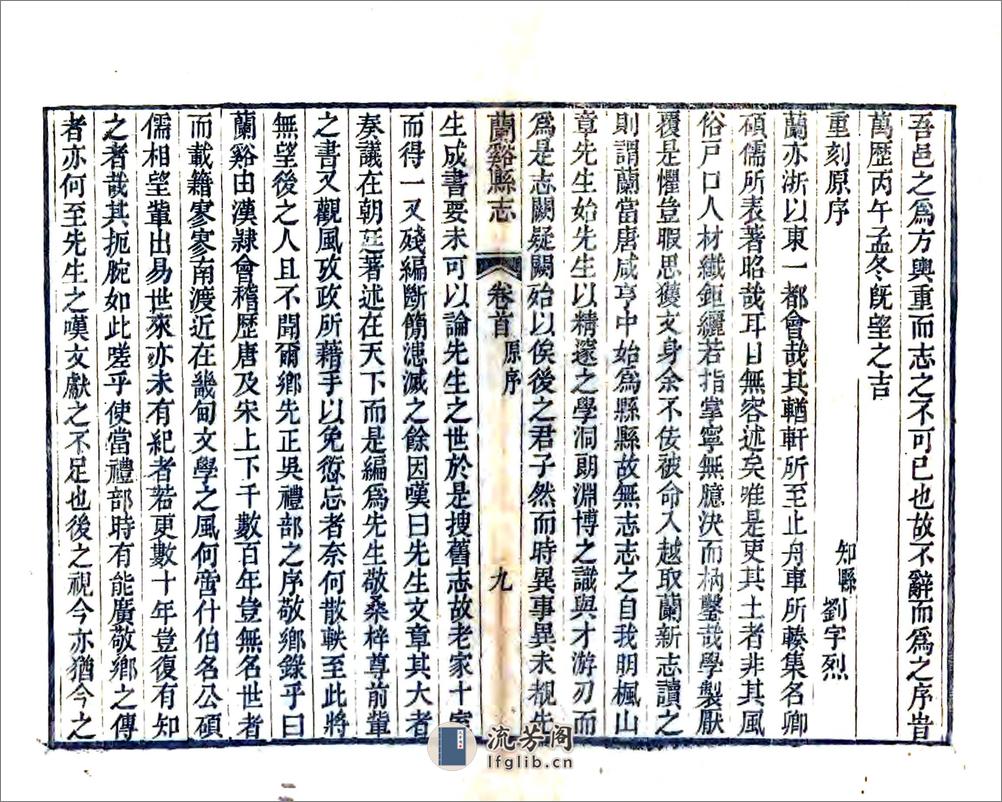 吾邑之爲方輿重而志之不可已也故不辭而爲之序旹
萬歷丙午孟冬旣望之吉
重刻原序
知縣劉字烈
蘭亦浙以東一都會哉其輶軒所至止舟車所輳集名卿
碩儒所表著昭哉耳目無容述矣唯是吏其土者非其風
俗戸口人材纖鉅纚若指掌寧無臆決而枘鑿哉學製厭
覆是懼豈暇思獲文身余不佞被命入越取蘭新志讀之
則謂蘭當唐咸亨中始爲縣縣故無志志之自我明楓山
章先生始先生以精邃之學洞朗淵博之識與才游刃而
爲是志闕疑闕殆以俟後之君子然而時異事異未覩先
蘭谿縣志
卷首
原序
九
生成書要未可以論先生之世於是搜舊志故老家十室
而得一又殘編斷簡漶滅之餘因嘆曰先生文章其大者
奏議在朝廷著述在天下而是編爲先生敬桑梓尊前輩
之書又觀風攷政所藉手以免愆忘者奈何散軼至此將
無望後之人且不聞爾鄉先正吳禮部之序敬鄉錄乎曰
蘭谿由漢隷會稽歷唐及宋上下千數百年豈無名世者
而載籍寥寥南渡近在畿甸文學之風何啻什伯名公碩
儒相望輩出易世來亦未有紀者若更數十年豈復有知
之者哉其扼腕如此嗟乎使當禮部時有能廣敬鄉之傳
者亦何至先生之嘆文獻之不足也後之視今亦猶今之
流芳阁
lfglib.cn